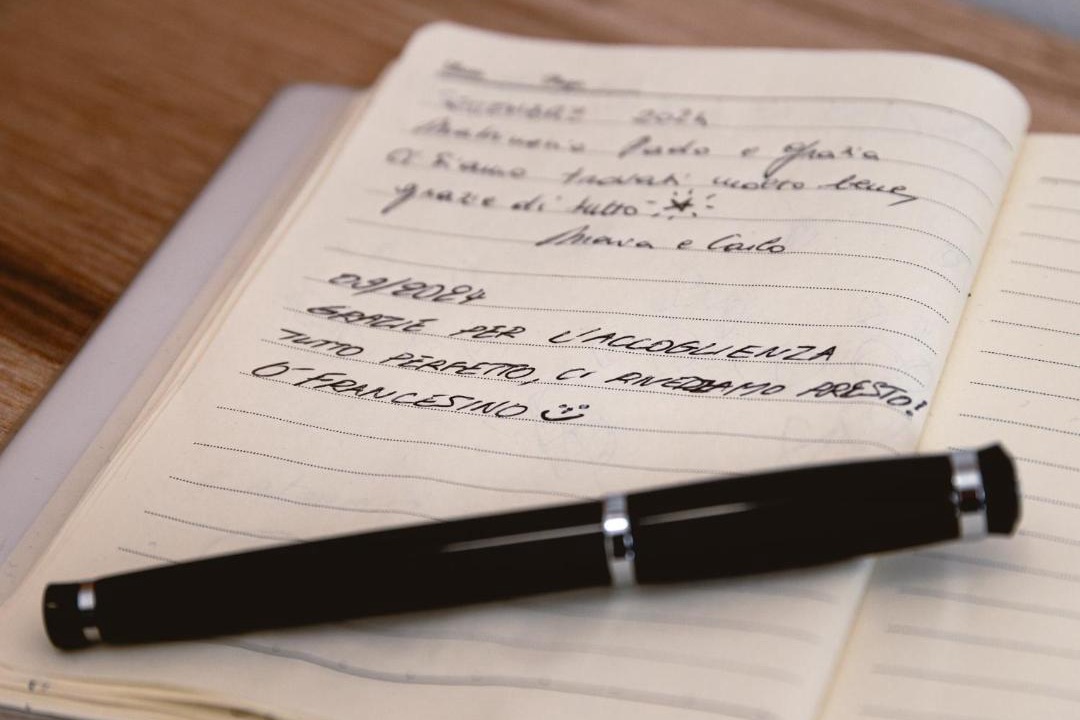 2024
Matrimonio Paolo e Grazia
Ci siamo trovati molto bene,
grazie di tutto
e Carlo
09/2024
GRAZIE PER L'ACCOGLIENZA
TUTTO PERFETTO, CI RIVEDIAMO PRESTO!
O' FRANCESINO